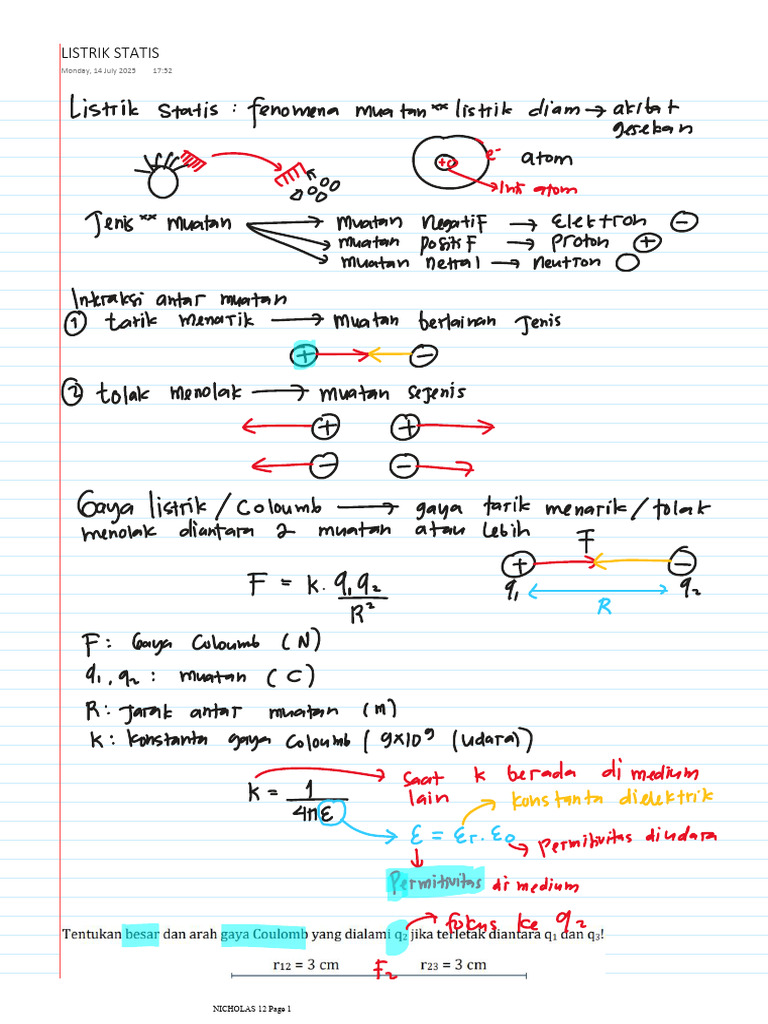 LISTRIK STATIS
Monday, 14 July 2025 17:52
Listrik statis : fenomena muatan** listrik diam → akibat
gesekan
+ e⁻ atom
→ Inti atom
Jenis** muatan → muatan negatif → Elektron ⊖
→ muatan positif → Proton ⊕
→ muatan netral → neutron ○
Interaksi antar muatan
① tarik menarik → muatan berlainan jenis
+ −
② tolak menolak → muatan sejenis
+ +
− −
Gaya listrik / Coloumb → gaya tarik menarik / tolak
menolak diantara 2 muatan atau lebih
F
+ −
q₁ R q₂
F = k. q₁q₂ / R²
F : Gaya Coloumb (N)
q₁, q₂ : muatan (C)
R : Jarak antar muatan (m)
k : konstanta gaya Coloumb ( 9×10⁹ (udara))
k = 1 / 4πε → saat k berada di medium
lain
→ konstanta dielektrik
ε = εr . ε₀ → permitivitas diudara
Permitivitas di medium
→ fokus ke q₂
Tentukan besar dan arah gaya Coulomb yang dialami q₂ jika terletak diantara q₁ dan q₃!
r₁₂ = 3 cm F₂ r₂₃ = 3 cm
NICHOLAS 12 Page 1